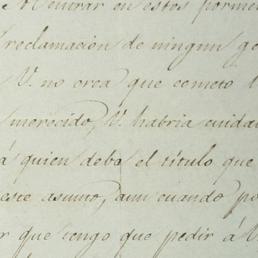 Al entrar en estos porme
reclamacion de ningun ge
V. no crea que cometo l
merecido, V. habria cuida
á quien deba el título que
este asunto, aun cuando po
r que tengo que pedir á V